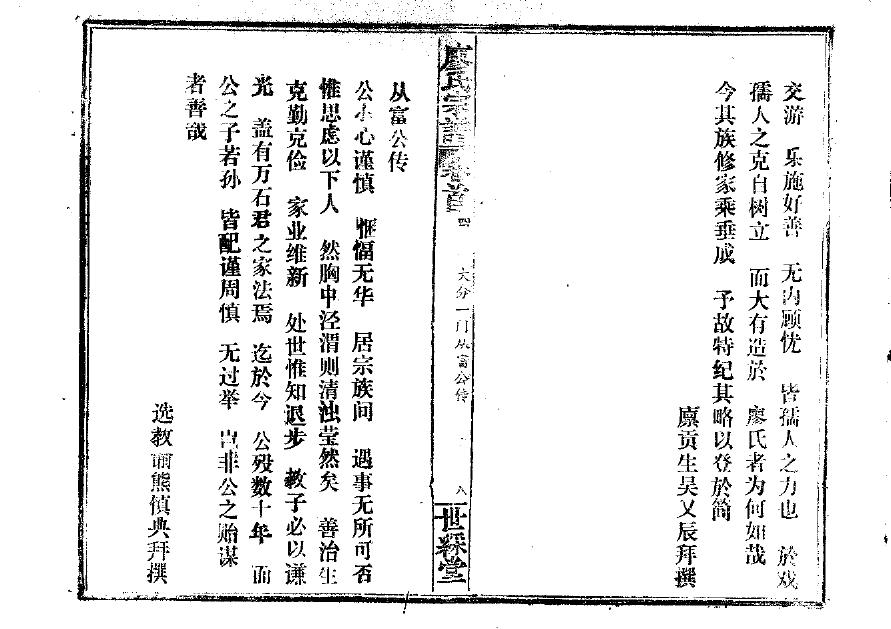 交游 乐施好善 无内顾忧 皆孺人之力也 於戏
孺人之克自树立 而大有造於 廖氏者为何如哉
今其族修家乘垂成 予故特纪其略以登於简
廪贡生吴又辰拜撰
廖氏宗谱 卷首 四 大分一门从富公传 八 世䌽堂
从富公传
公小心谨慎 悃愊无华 居宗族间 遇事无所可否
惟思虑以下人 然胸中泾渭则清浊莹然矣 善治生
克勤克俭 家业维新 处世惟知退步 教子必以谦
光 盖有万石君之家法焉 迄於今 公殁数十年 而
公之子若孙 皆配谨周慎 无过举 岂非公之贻谋
者善哉
选教谕熊慎典拜撰